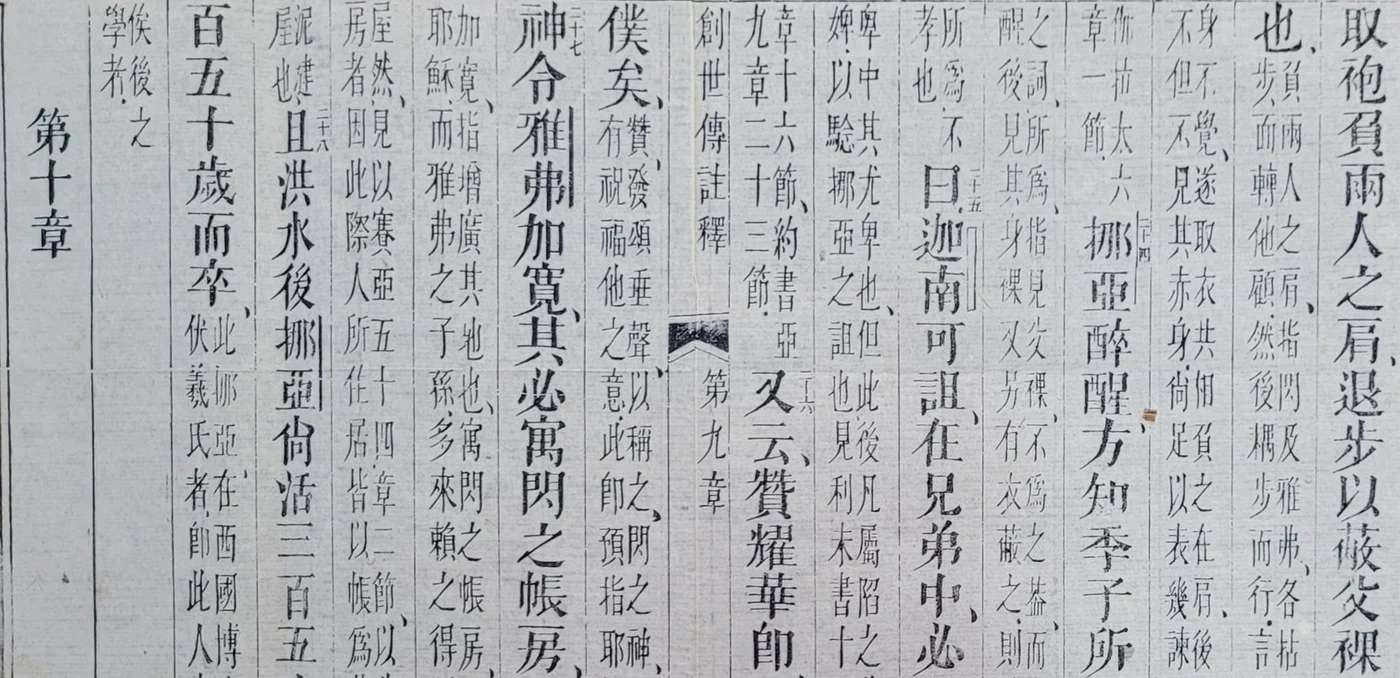 取袍負兩人之肩、退步以蔽父裸
也、負兩人之肩、指閃及雅弗、各拈
步、而轉他顧、然後耦步而行、言
身不覺、遂取衣共佃負之在肩、後
不但不見其赤身、尙足以表幾諫
伽拉太六
章一節、二十四挪亞醉醒方知季子所
之詞、所爲、指見父裸、不爲之葢、而
醒後見其身裸、又另有衣蔽之、則
所爲不
孝也二十五曰迦南可詛、在兄弟中、必
卑中其尤卑也、但此後凡屬陷之
婢、以騐挪亞之詛也見利未書十
章十六節、約書亞
九章二十三節、二十六又云、贊耀華卽
創世傳註釋 第九章
僕矣、贊、發頌垂聲、以稱之、閃之神、
有祝福他之意、此卽預指耶
二十七神令雅弗加寬、其必寓閃之帳房、
加寬、指增廣其地也、寓閃之帳房、
耶穌、而雅弗之子孫、多來賴之得
屋然、見以賽亞五十四章二節、以
房者、因此際人所住居皆以帳爲
泥建
屋也、二十八且洪水後挪亞尙活三百五
百五十歲而卒、此挪亞、在西國博
伏羲氏者、卽此人
俟後之
學者、
第十章